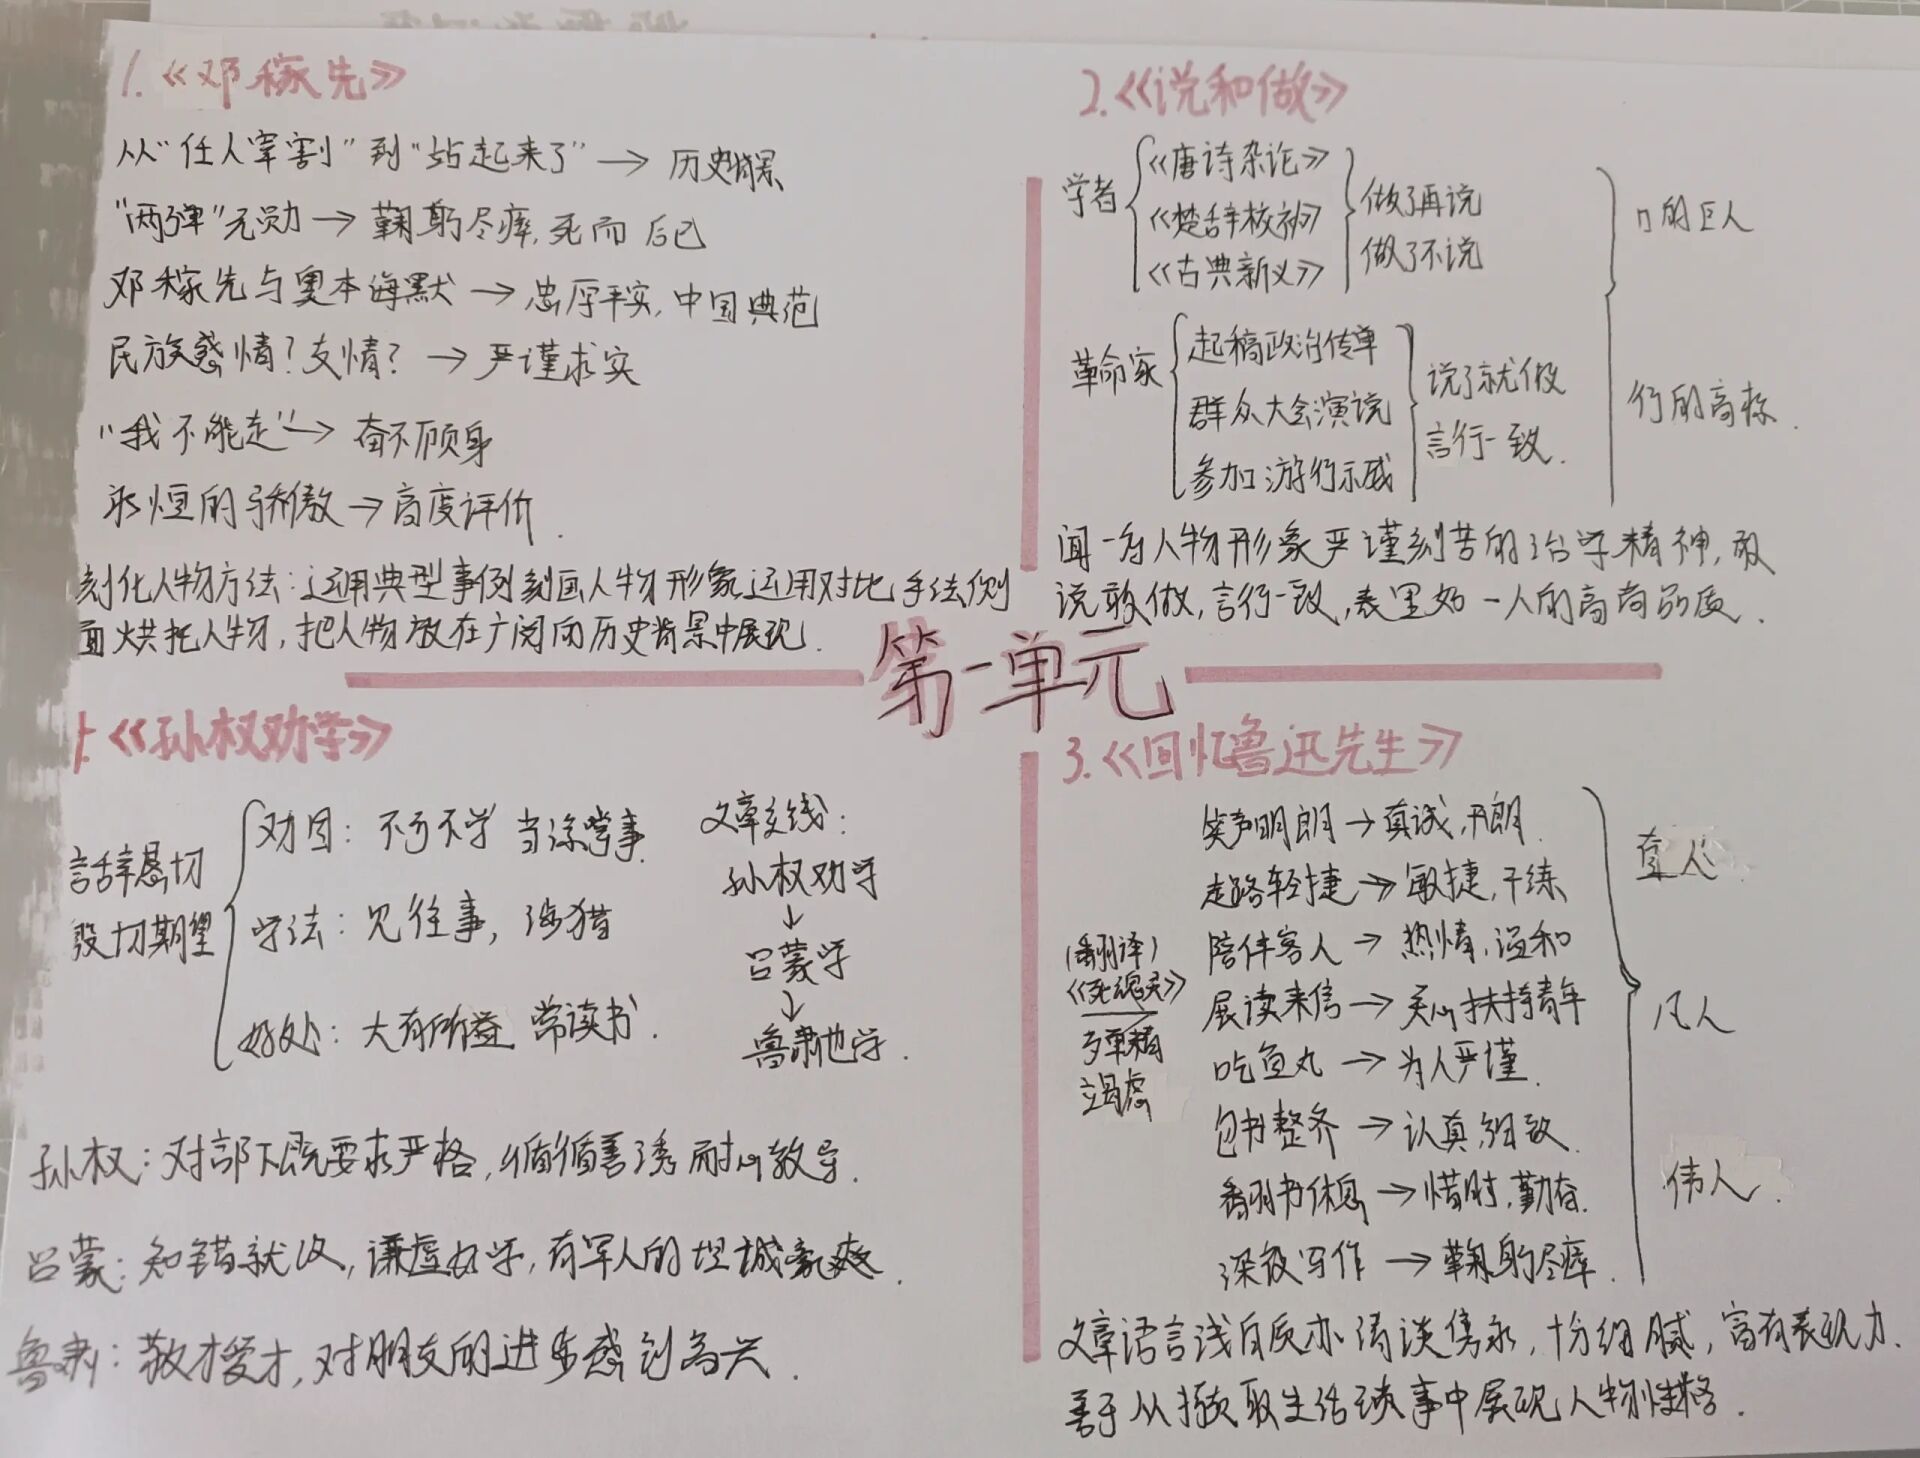 1.《邓稼先》
从“任人宰割”到“站起来了”→历史背景
“两弹”元勋→鞠躬尽瘁,死而后已
邓稼先与奥本海默→忠厚平实,中国典范
民族感情?友情?→严谨求实
“我不能走”→奋不顾身
永恒的骄傲→高度评价.
刻化人物方法:运用典型事例刻画人物形象,运用对比手法侧
面烘托人物,把人物放在广阔的历史背景中展现.
2.《说和做》
学者
《唐诗杂论》
《楚辞校补》
《古典新义》
做了再说
做了不说
口的巨人
革命家
起稿政治传单
群众大会演说
参加游行示威
说了就做
言行一致.
行的高标.
闻一多人物形象严谨刻苦的治学精神,敢
说敢做,言行一致,表里如一人的高尚品质.
第一单元
《孙权劝学》
言辞恳切
殷切期望
劝因:不可不学 当涂掌事.
学法:见往事,涉猎
好处:大有所益 常读书.
文章主线:
孙权劝学
↓
吕蒙学
↓
鲁肃也学.
孙权:对部下既要求严格,循循善诱耐心教导.
吕蒙:知错就改,谦虚好学,有军人的坦诚豪爽.
鲁肃:敬才爱才,对朋友的进步感到高兴.
3.《回忆鲁迅先生》
笑声明朗→真诚,开朗.
走路轻捷→敏捷,干练
陪伴客人→热情,温和
展读来信→关心扶持青年
吃鱼丸→为人严谨.
包书整齐→认真,细致.
翻书休息→惜时,勤奋.
深夜写作→鞠躬尽瘁.
(翻译)
《死魂灵》
殚精
竭虑
直人.
凡人
伟人.
文章语言浅白质朴清谈隽永,十分细腻,富有表现力.
善于从撷取生活琐事中展现人物性格.